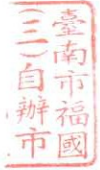 臺南市福國
(三)自辦市